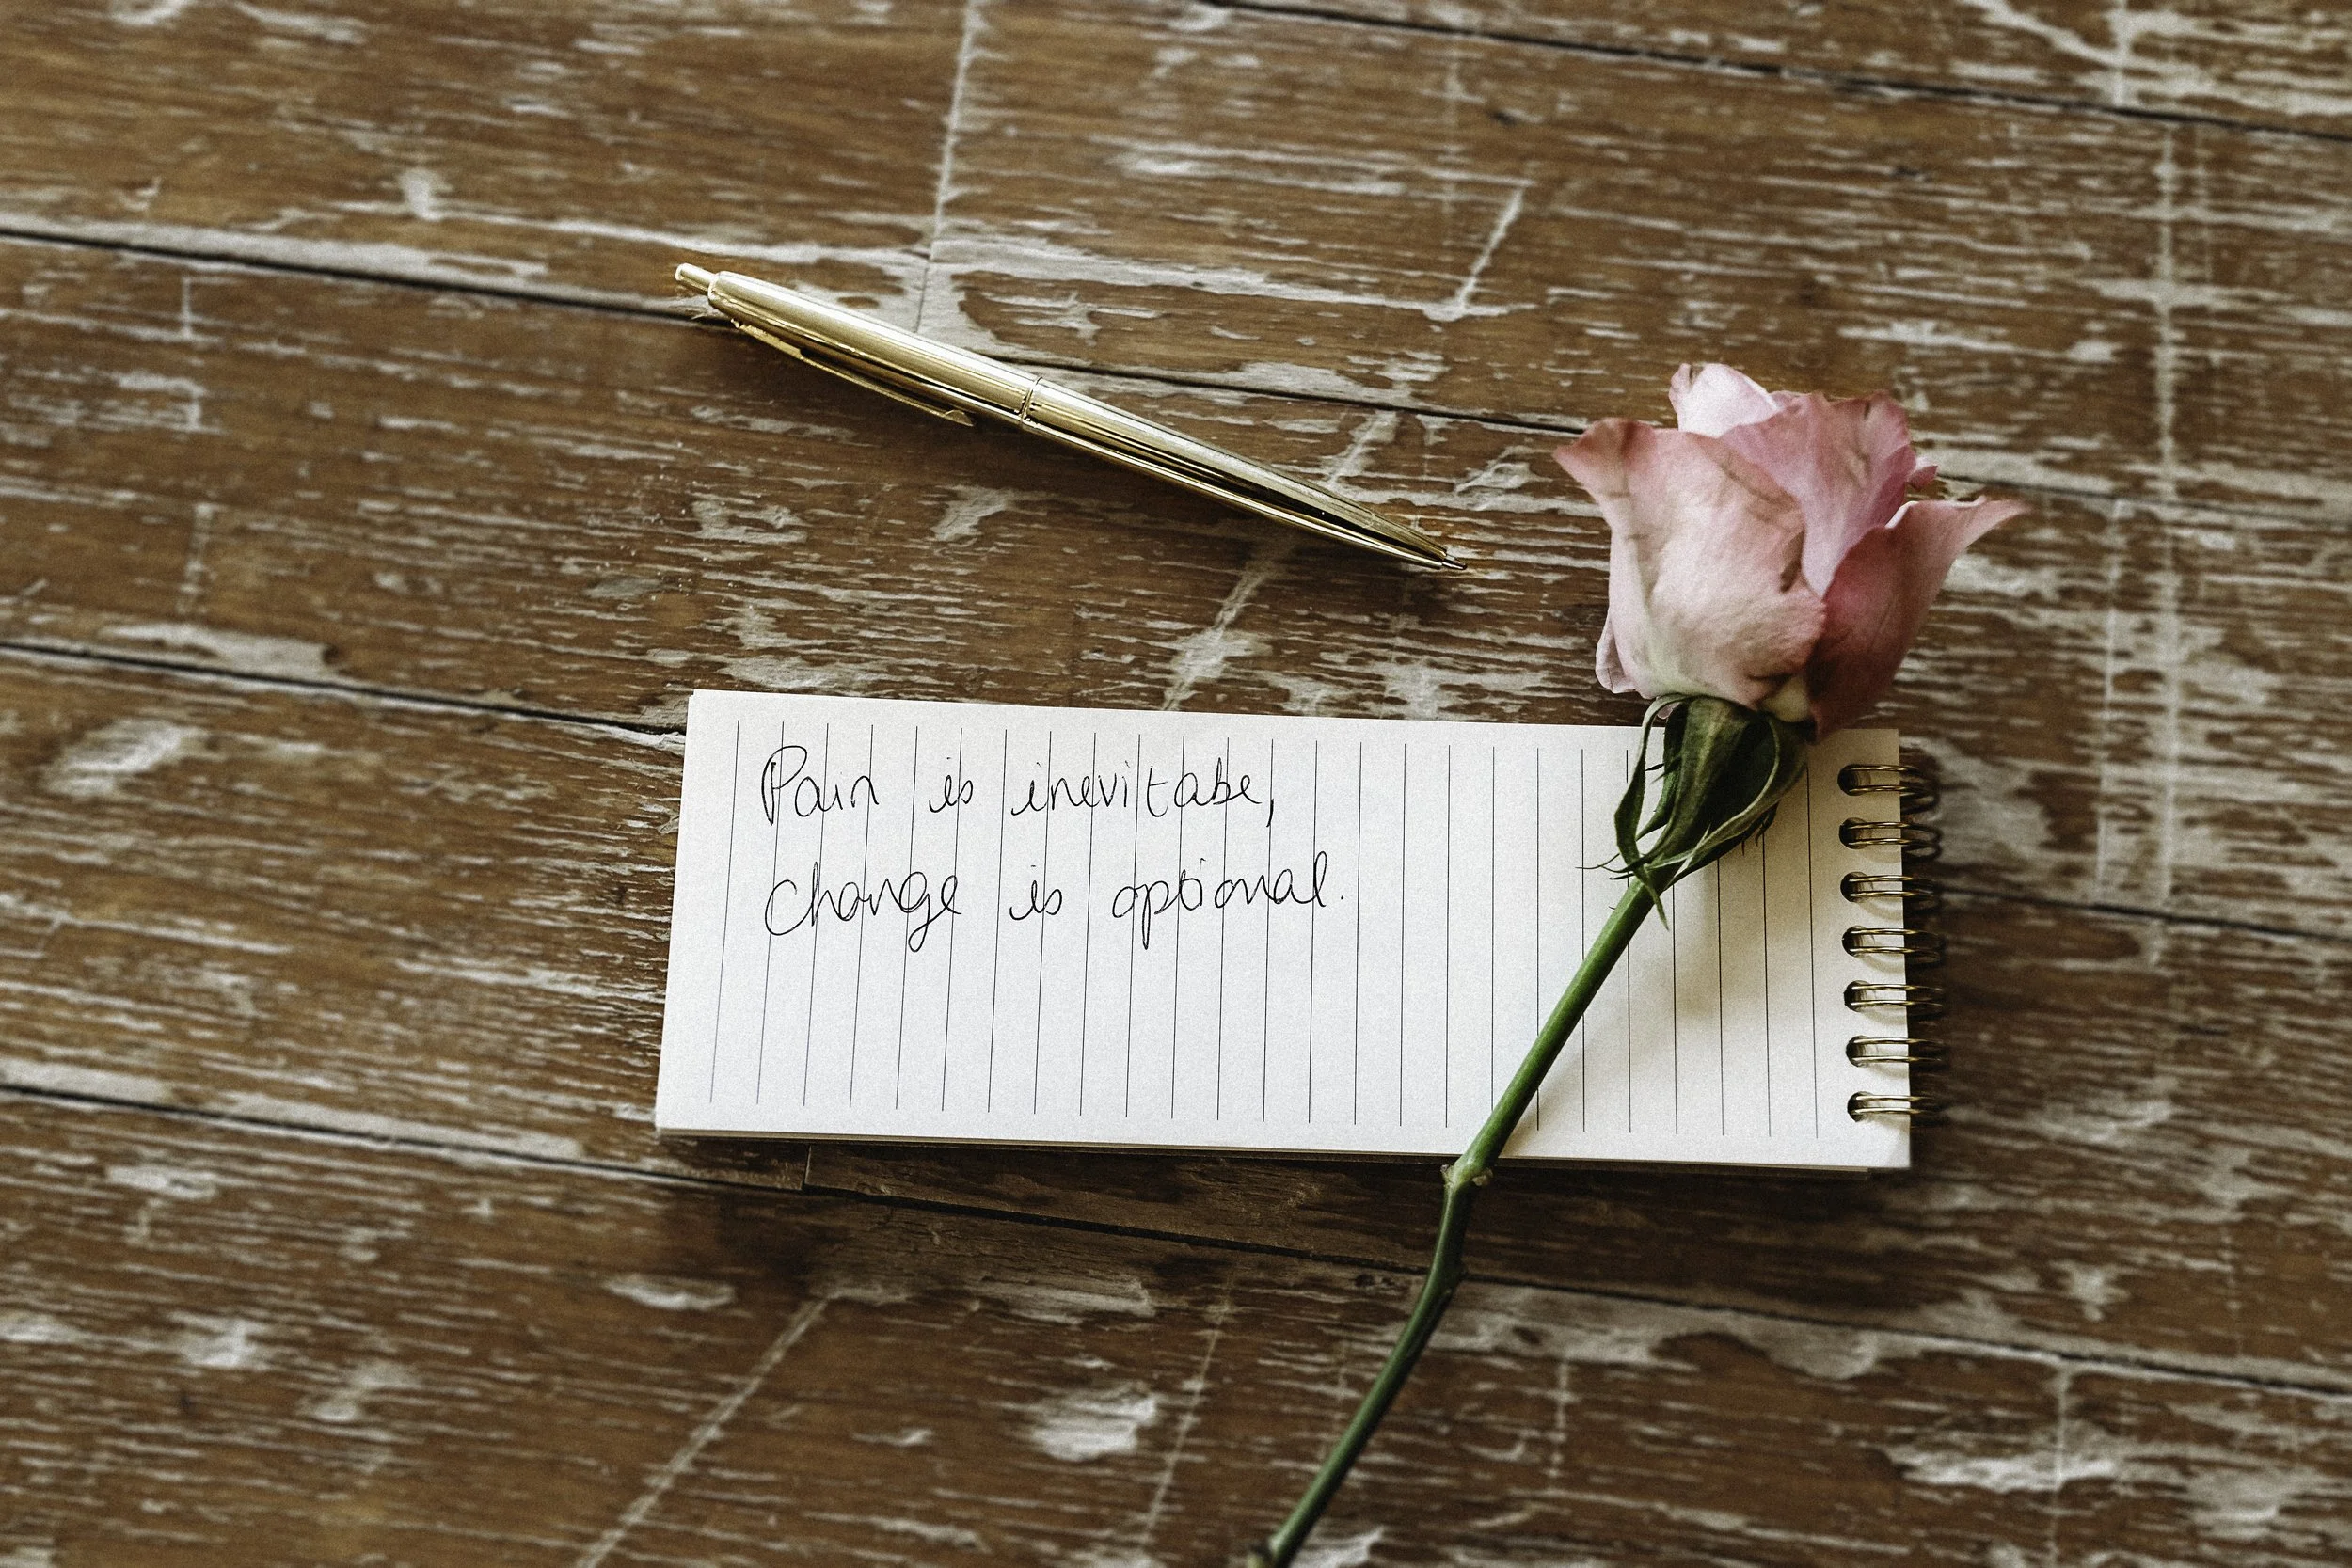 Pain is inevitabe,
change is optional.